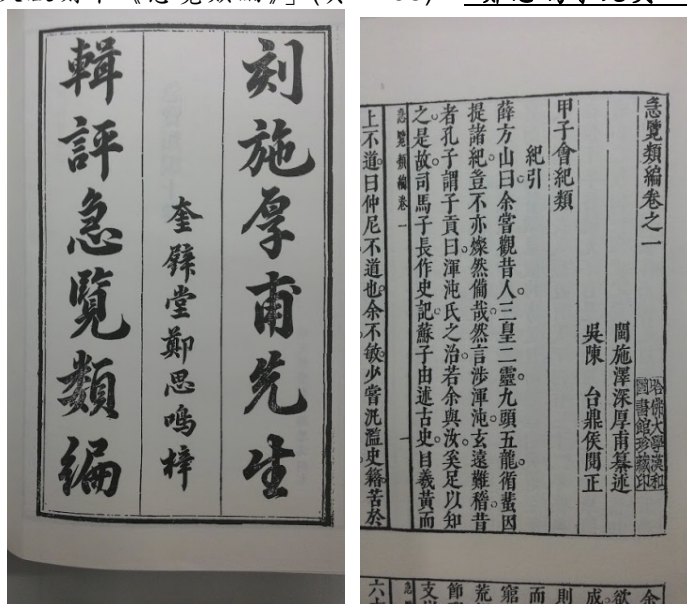 刻施厚甫先生
奎壁堂鄭思鳴梓
輯評急覽類編
急覽類編卷之一
閩施澤深厚甫纂述
吳陳　台鼎侯閱正
哈佛大學漢和
圖書館珍藏印
甲子會紀類
紀引
薛方山曰余嘗觀昔人三皇二靈九頭五龍循蜚因
提諸紀豈不亦燦然備哉然言涉渾沌玄遠難稽昔
者孔子謂子貢曰渾沌氏之治若余與汝奚足以知
之是故司馬子長作史記蘇子由述古史自羲黃而
急覽類編卷一
一
上不道曰仲尼不道也余不敏少嘗汎濫史籍苦於